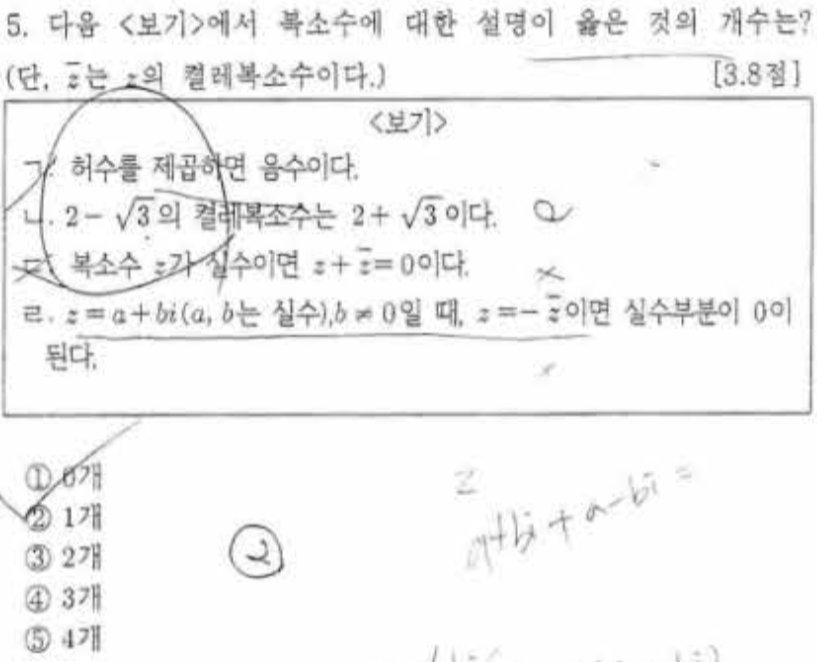 5. 다음 <보기>에서 복소수에 대한 설명이 옳은 것의 개수는?
(단, z̄는 z의 켤레복소수이다.) [3.8점]
<보기>
ㄱ. 허수를 제곱하면 음수이다.
ㄴ. 2-√3의 켤레복소수는 2+√3이다.
ㄷ. 복소수 z가 실수이면 z+z̄=0이다.
ㄹ. z=a+bi(a, b는 실수),b≠0일 때, z=-z̄이면 실수부분이 0이
된다.
① 0개
② 1개
③ 2개
④ 3개
⑤ 4개
2
z
a+bi+a-bi=